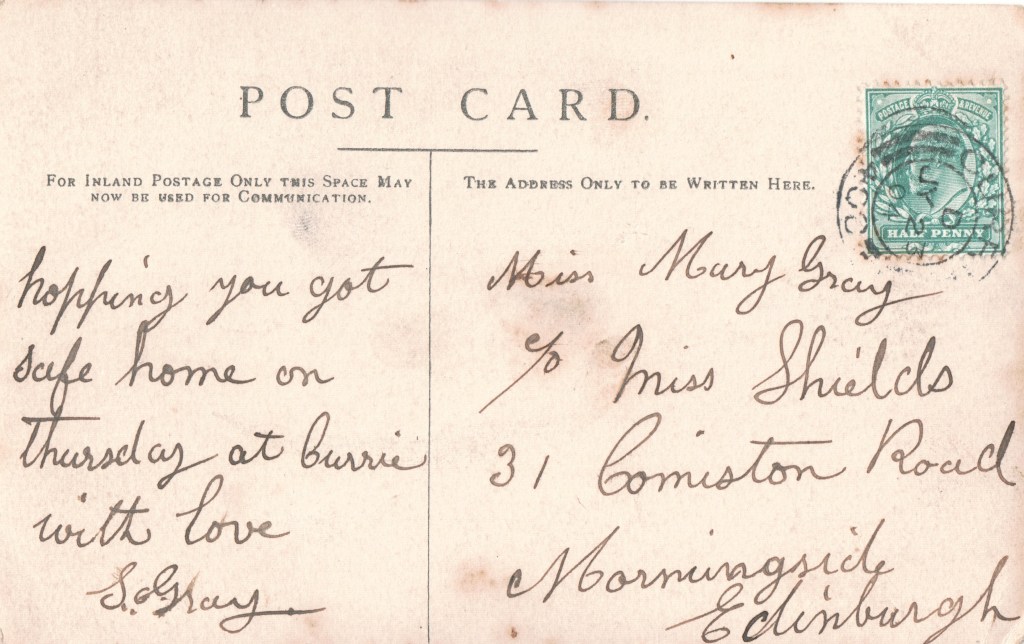 POST CARD.
FOR INLAND POSTAGE ONLY THIS SPACE MAY
NOW BE USED FOR COMMUNICATION.
THE ADDRESS ONLY TO BE WRITTEN HERE.
POSTAGE & REVENUE
HALF PENNY
hopping you got
safe home on
thursday at Currie
with love
S. Gray.
Miss Mary Gray
c/o Miss Shields
31 Comiston Road
Morningside
Edinburgh